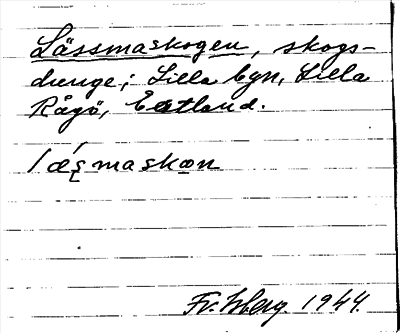 Lässmaskogen, skogs-
dunge; Lilla byn, Lilla
Rågö, Estland.
lǽs̨maskon
Fr. Isberg. 1944.